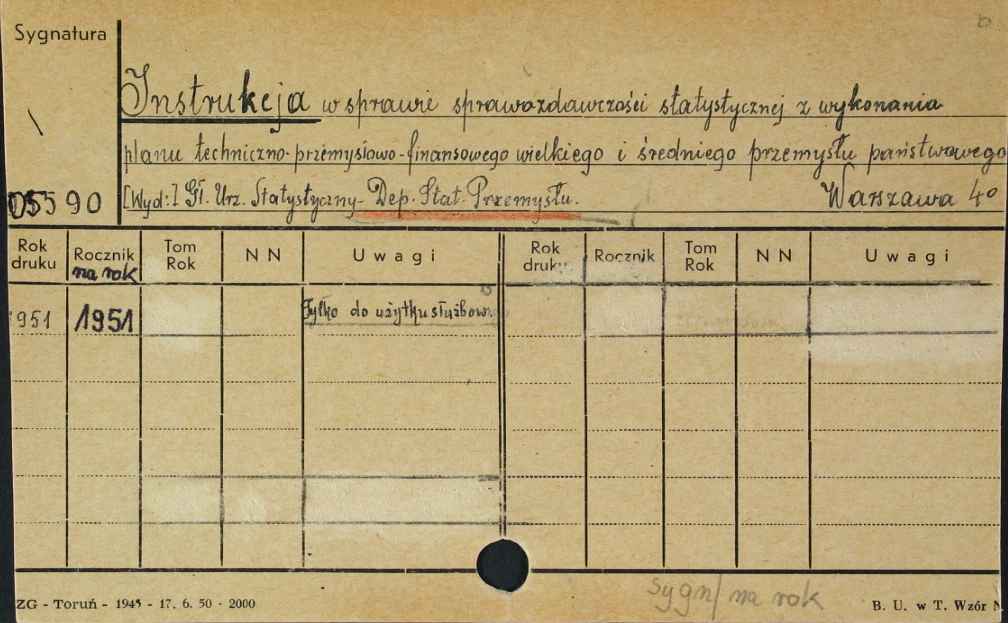 Sygnatura
Instrukcja w sprawie sprawozdawczości statystycznej z wykonania
planu techniczno-przemysłowo-finansowego wielkiego i średniego przemysłu państwowego
05590 [Wyd:] Gł. Urz. Statystyczny- Dep. Stat. Przemysłu. Warszawa 4°
Rok druku Rocznik na rok Tom Rok N N Uwagi Rok druku Rocznik Tom Rok N N Uwagi
1951 1951 Tylko do użytku służbow.
sygn/ na rok
ZG - Toruń - 1945 - 17. 6. 50 - 2000 B. U. w T. Wzór